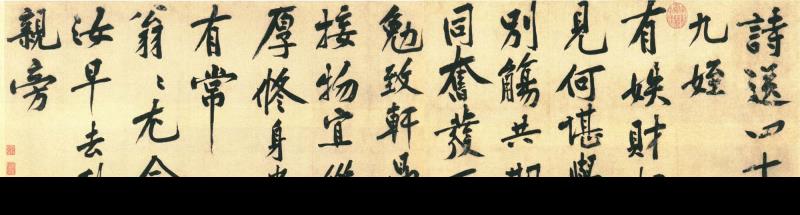 詩送四十
九姪
有娛財
見何堪
別觴共
同奮發
勉致軒
接物宜
厚修身
有常
翁〻尤
汝早去
親旁